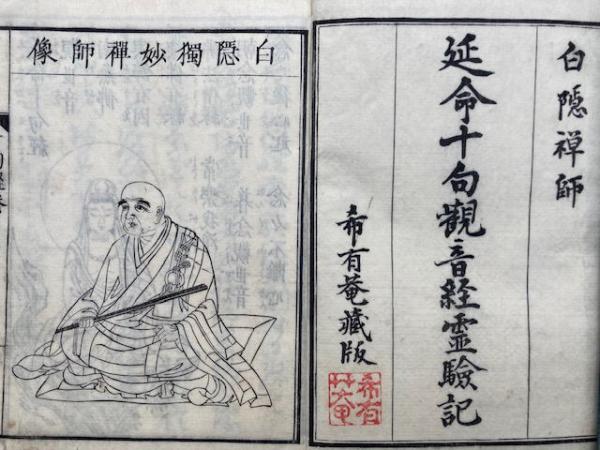 白隠禅師
延命十句觀音経霊驗記
希有菴藏版
希有菴
白隠獨妙禪師像